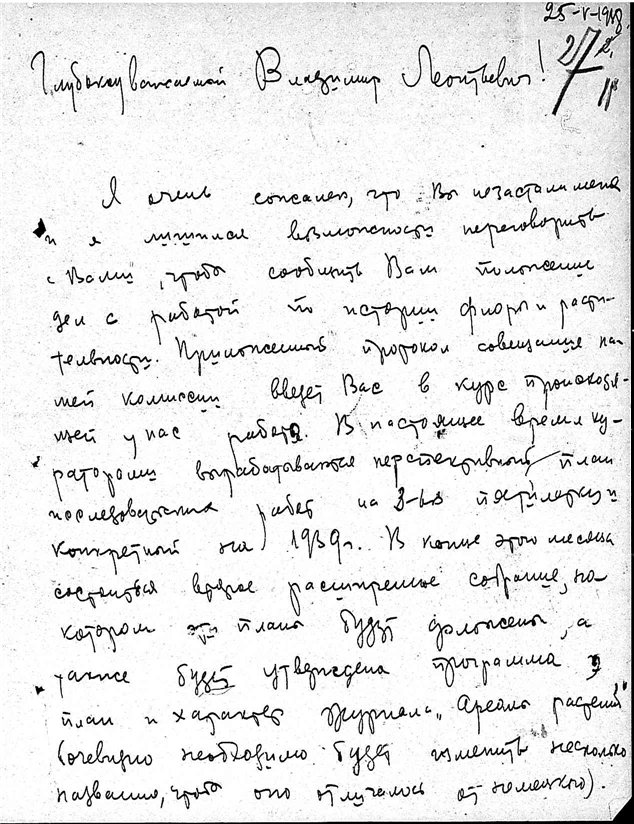 25-V-1938
27/2 II
Глубокоуважаемой Владимир Леонтьевич!
Я очень сожалею, что Вы незастали меня
и я лишился возможности переговорить
с Вами, чтоб сообщить Вам положение
дел с работой по истории флоры и расти-
тельности. Приложенный протокол совещания на-
шей комиссии введет Вас в курс происходя-
щей у нас работы. В настоящее время ку-
раторами вырабатывается перспективный план
исследовательских работ на 3-ью пятилетку и
конкретный на 1939г. В конце этого месяца
состоиться второе расширенное собрание, на
котором эти планы будут доложены, а
также будет утверждена программа,
план и характер журнала „Ареалы растений"
(очевидно необходимо будет изменить несколько
название, чтоб оно отличалось от немецкого).